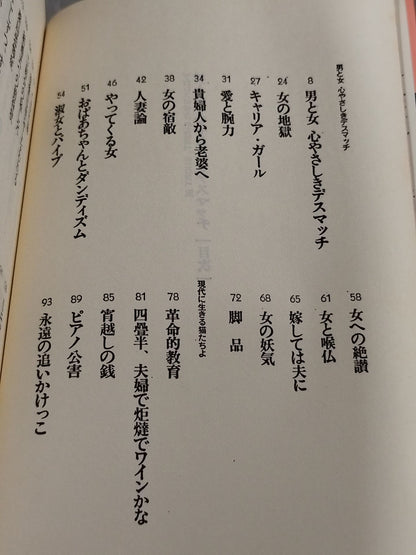 男と女 心やさしきデスマッチ
8 男と女 心やさしきデスマッチ
24 女の地獄
27 キャリア・ガール
31 愛と腕力
34 貴婦人から老婆へ
38 女の宿敵
42 人妻論
46 やってくる女
51 おばあちゃんとダンディズム
54 淑女とパイプ
58 女への絶讃
61 女と喉仏
65 嫁しては夫に
68 女の妖気
72 脚品
現代に生きる猫たちよ
78 革命的教育
81 四畳半、夫婦で炬燵でワインかな
85 宵越しの銭
89 ピアノ公害
93 永遠の追いかけっこ